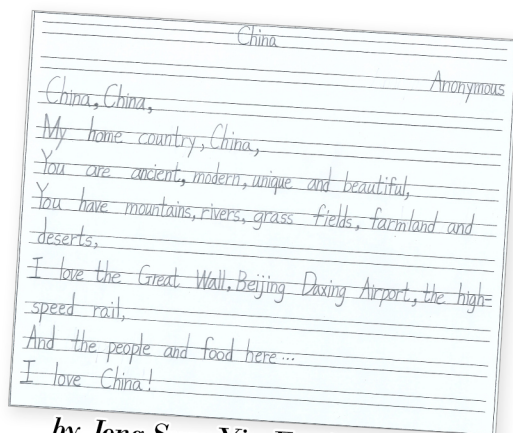 China
Anonymous
China, China,
My home country, China,
You are ancient, modern, unique and beautiful,
You have mountains, rivers, grass fields, farmland and
deserts,
I love the Great Wall, Beijing Daxing Airport, the high-
speed rail,
And the people and food here...
I love China!
by